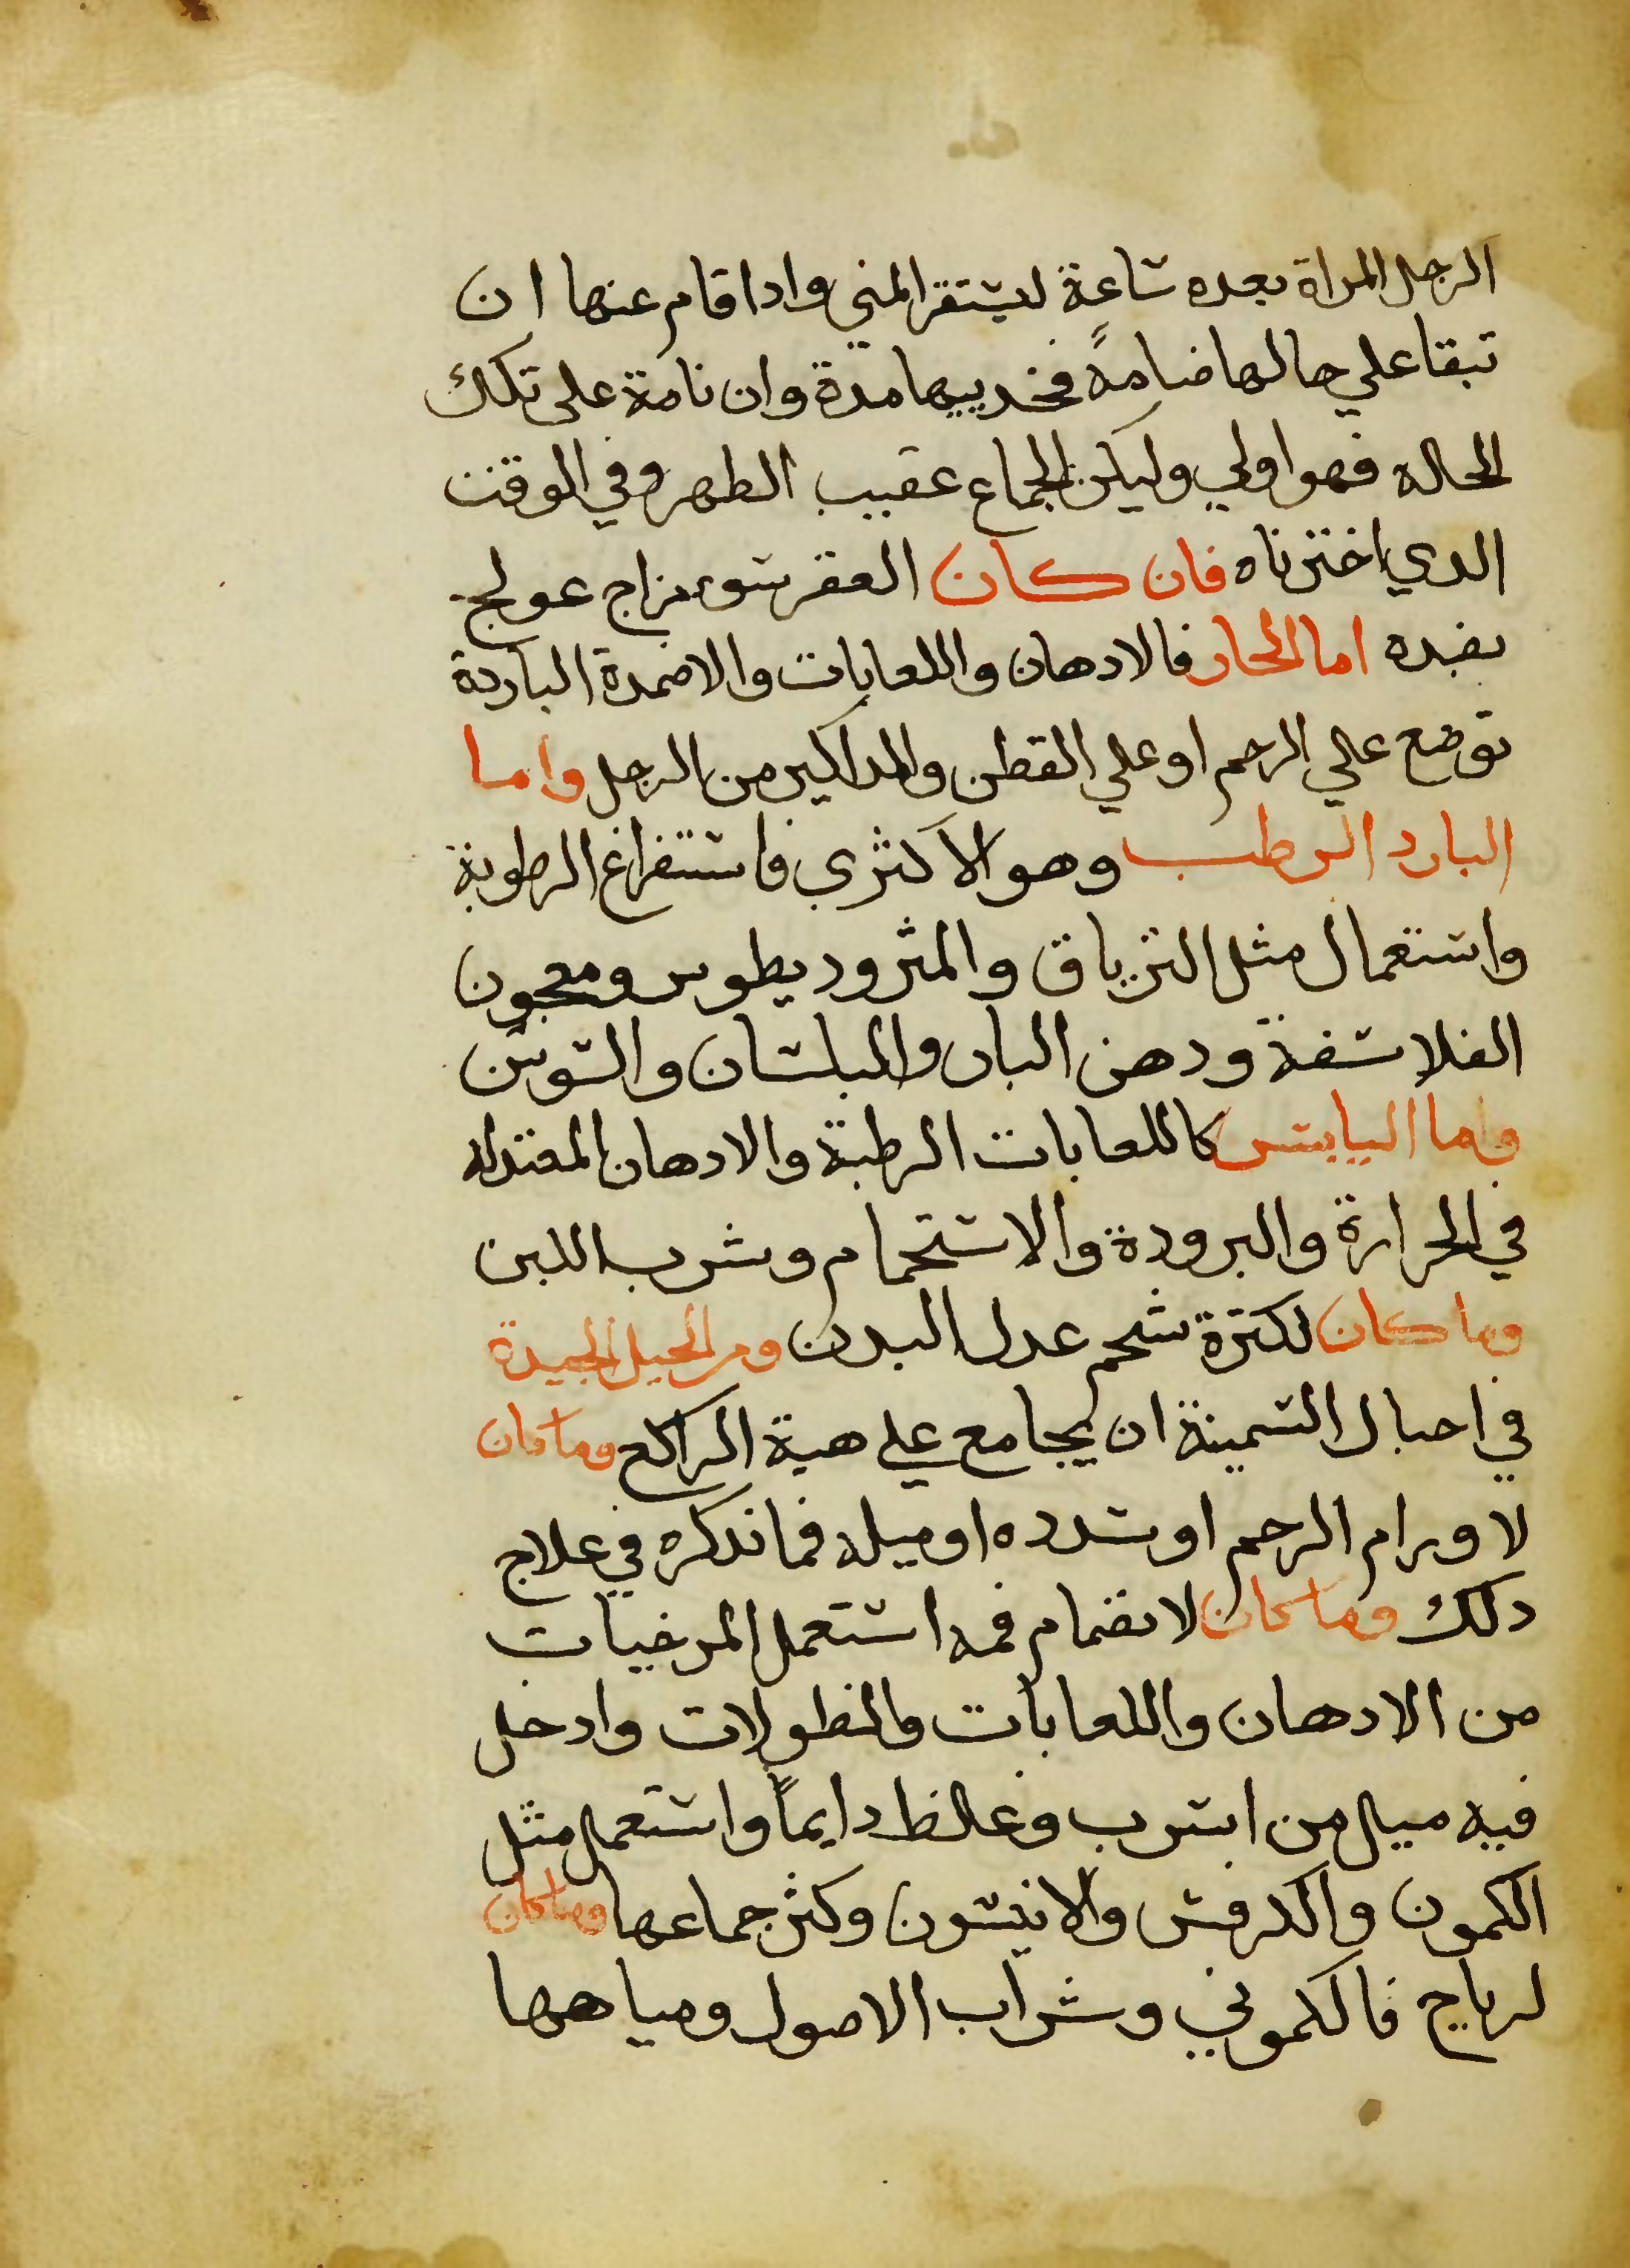 الرجل المراة بعده ساعة ليستقر المني وادا قام عنها ان
تبقا علي حالها ضامةً فخدييها مدة وان نامة على تلك
الحاله فهو اولي وليكن الجماع عقيب الطهر وفي الوقت
الدي اخترناه فان كان العقر سو مزاج عولج
بضده اما الحار فالادهان واللعابات والاضمدة الباردة
توضع علي الرحم او علي القطن والمداكير من الرجل واما
البارد الرطب وهو الاكثري فاستفراغ الرطوبة
واستعمال مثل الترياق والمثروديطوس ومعجون
الفلاسفة ودهن البان والبلسان والسوسن
واما اليابس كاللعابات الرطبة والادهان المعتدله
في الحرارة والبرودة والاستحمام وشرب اللبن
وما كان لكثرة شحم عدل البدن ومن الحيل الجيدة
في احبال السمينة ان يجامع علي هية الراكع وما كان
لاورام الرحم او سدده او ميله فما ندكره في علاج
دلك وما كان لانضمام فمه استعمل المرخيات
من الادهان واللعابات والنطولات وادخل
فيه ميل من اسرب وغلظ دايماً واستعمل مثل
الكمون والكرفس والانيسون وكثر جماعها وما كان
لرياح فالكموني وشراب الاصول ومياهها